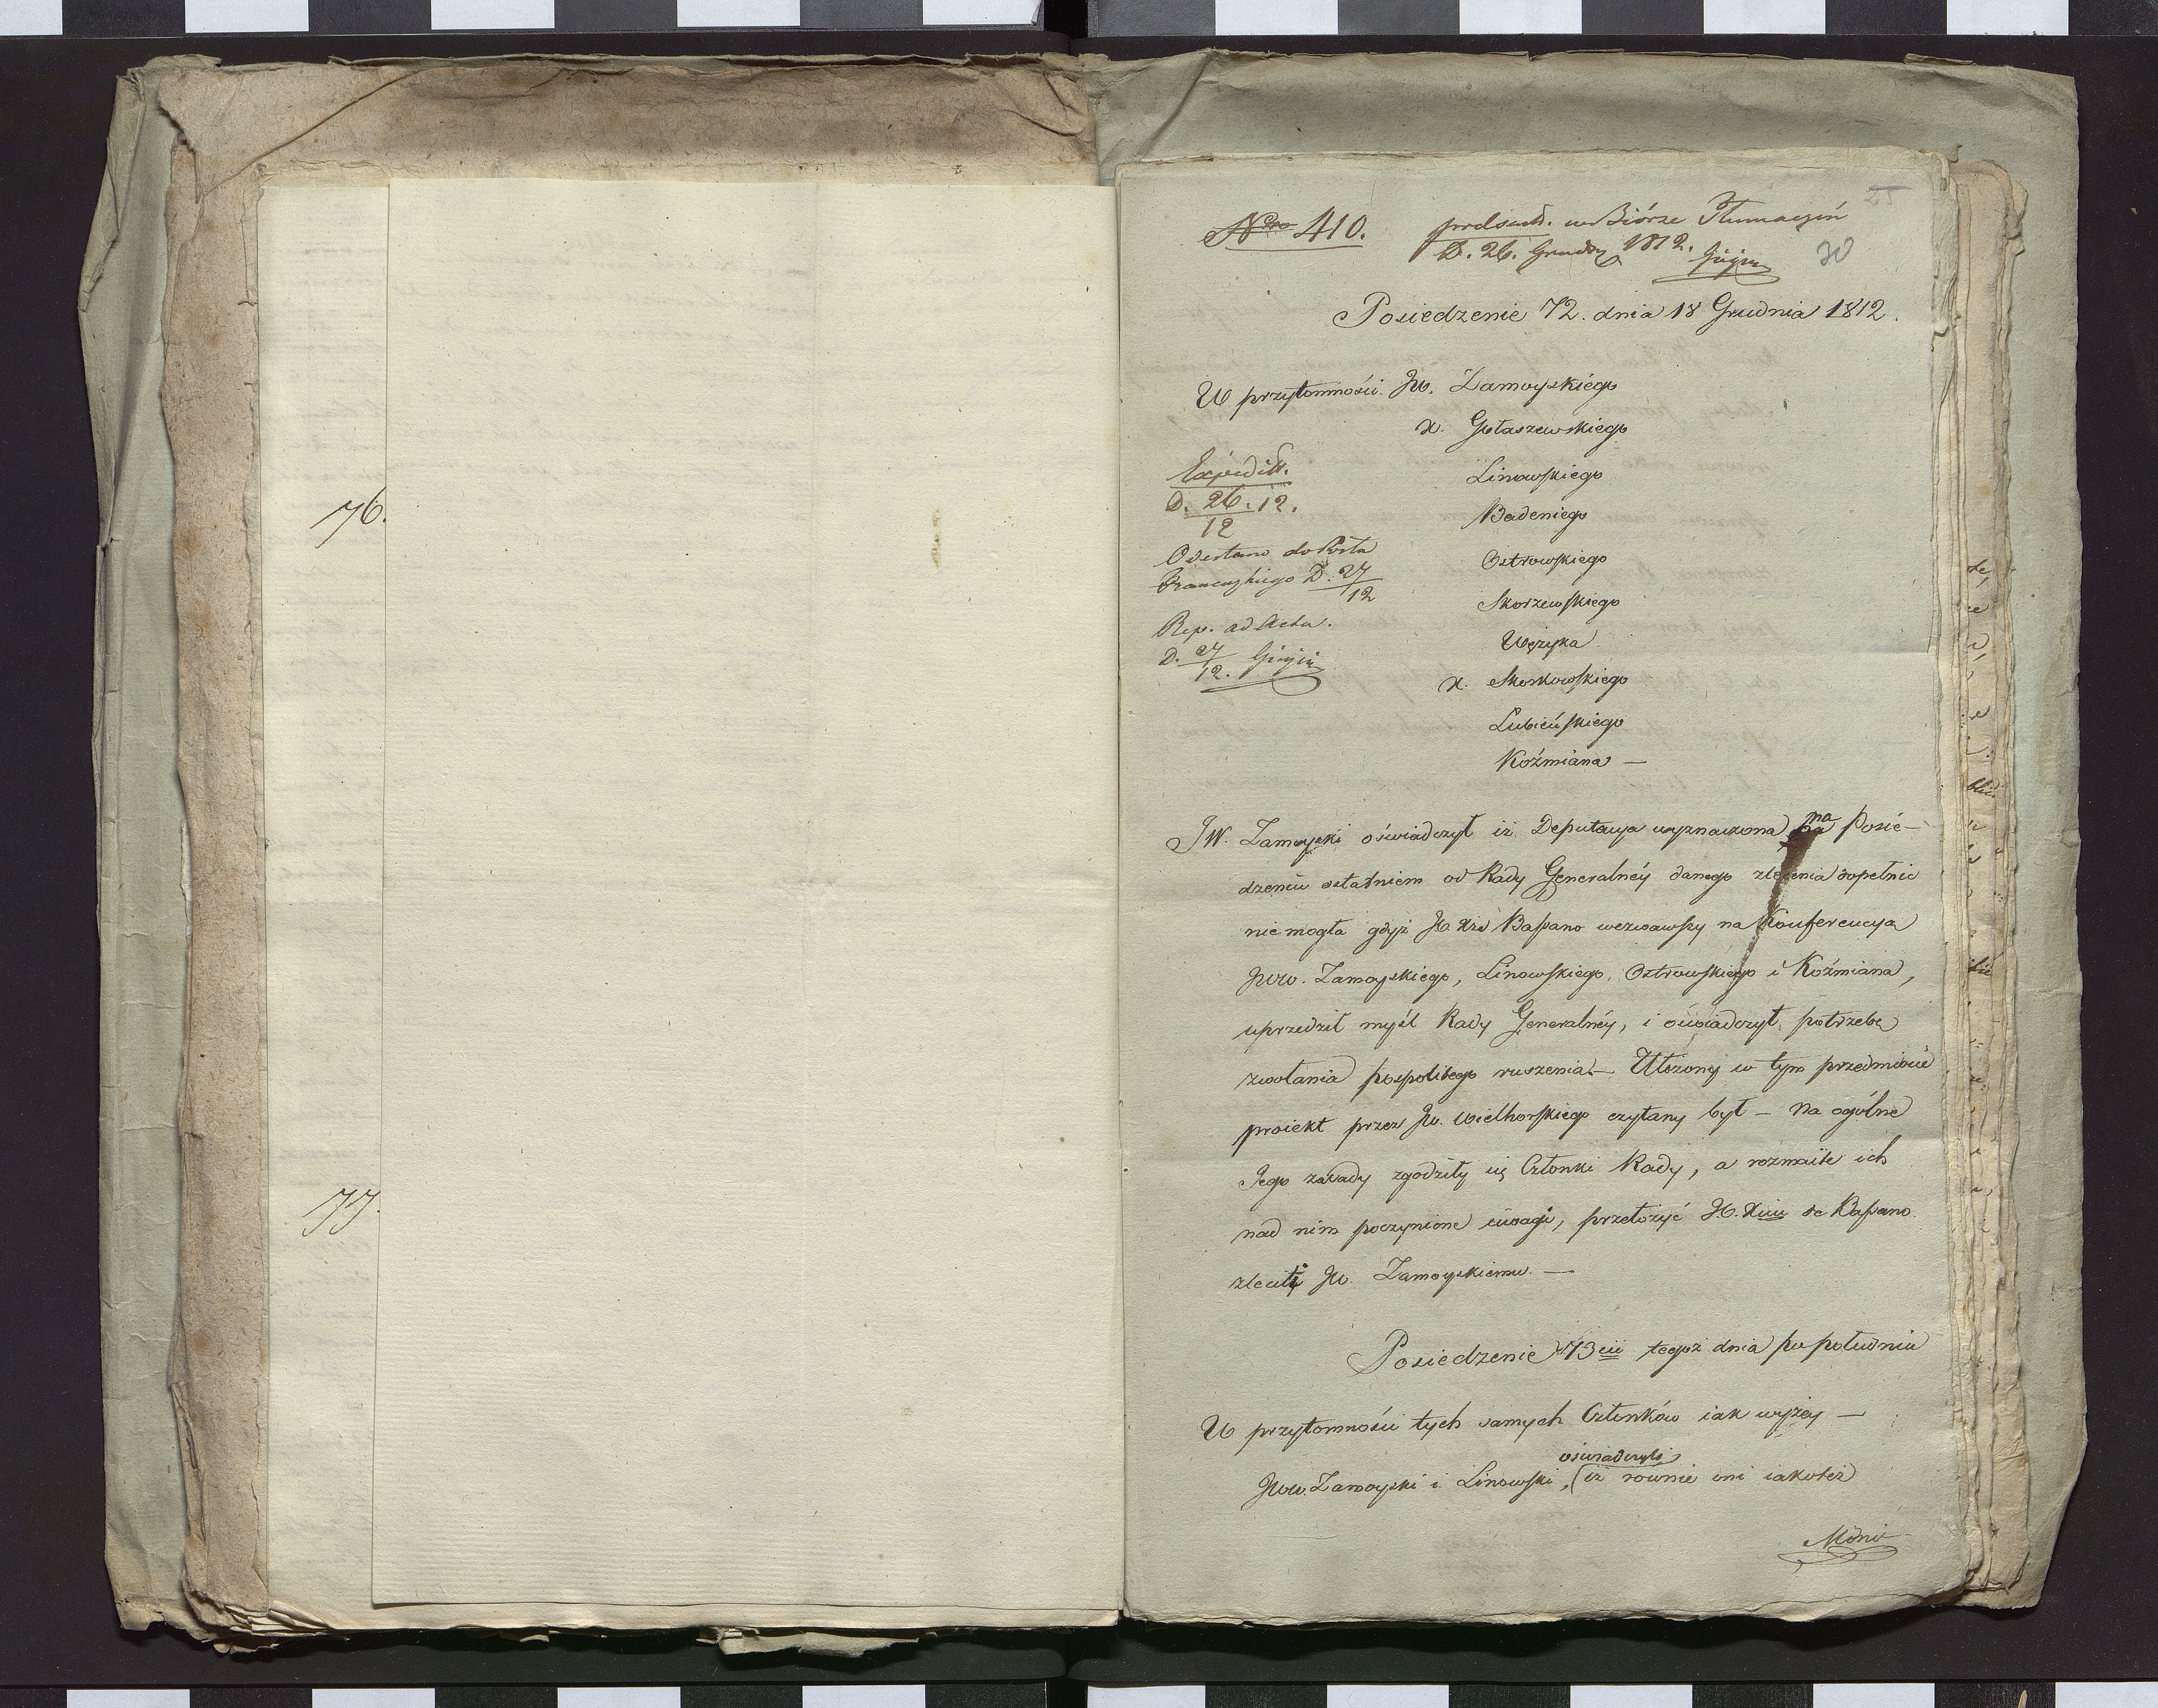 76.
77.
Nro 410.
w Biórze Tłumaczeń
D. 26. Grudn 1812.
30
Posiedzenie 72. dnia 18 Grudnia 1812.
W przytomności JW. Zamoyskiego
X. Gołaszewskiego
Linowskiego
Badeniego
Ostrowskiego
Skorzewskiego
Wężyka
X. Skorkowskiego
Lubieńskiego
Koźmiana —
Expeditt.
D. 26. 12.
12
Odesłano do Posła
Francuzkiego D. 27
12
Rep. ad Acta.
D. 27
12.
JW. Zamoyski oświadczył iż Deputacya wyznaczona na Posie-
dzeniu ostatniem od Rady Generalnéy danego zlecenia dopełnić
nie mogła gdyż JO Xże Bassano wezwawszy na Konferencya
JWW. Zamoyskiego, Linowskiego, Ostrowskiego i Koźmiana,
uprzedził myśl Rady Generalnéy, i oświadczył potrzebę
zwołania pospolitego ruszenia. — Ułożony w tym przedmiocie
proiekt przez JW. Wielhorskiego czytany był — na ogólne
Jego zasady zgodziły się Członki Rady, a rozmaite ich
nad nim poczynione uwagi, przełożyć JO. Xciu de Bassano
zleciły JW. Zamoyskiemu. —
Posiedzenie 73cie tegoż dnia po południu
W przytomności tych samych Członków iak wyżey —
oświadczyli
JWW. Zamoyski i Linowski, iż rownie oni iakoteż